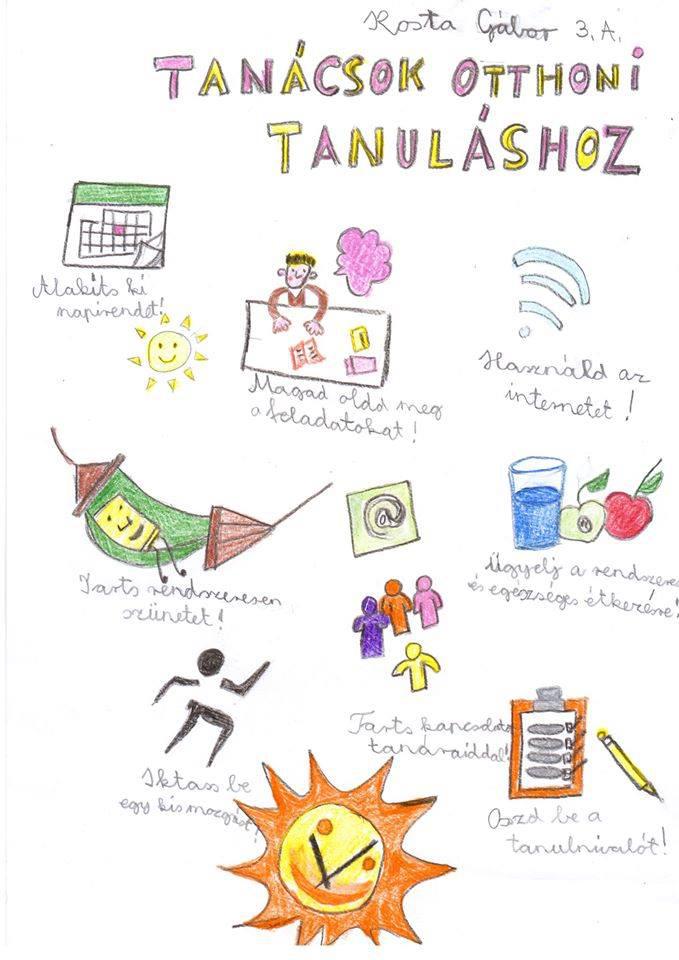 Kosta Gábor 3. A.
TANÁCSOK OTTHONI
TANULÁSHOZ
Alakíts ki
napirendet!
Magad oldd meg
a feladatokat!
Használd az
internetet!
Tarts rendszeresen
szünetet!
@
Ügyelj a rendszeres
és egészséges étkezésre!
Tarts kapcsolatot
tanáraiddal!
Iktass be
egy kis mozgást!
Oszd be a
tanulnivalót!